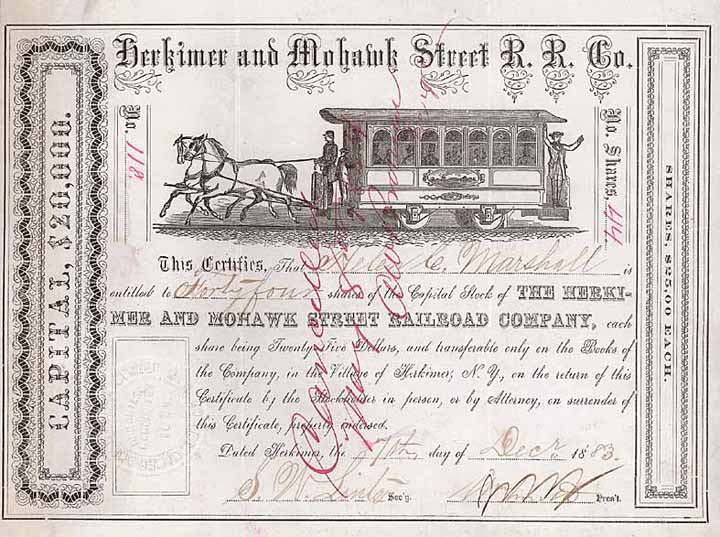 Herkimer and Mohawk Street R. R. Co.
CAPITAL, $20,000.
No. 118
No. Shares, 44
SHARES $25.00 EACH.
This Certifies, That C. Marshall is
entitled to Forty four shares of the Capital Stock of THE HERKI-
MER AND MOHAWK STREET RAILROAD COMPANY, each
share being Twenty-Five Dollars, and transferable only on the Books of
the Company, in the Village of Herkimer, N. Y., on the return of this
Certificate by the Stockholder in person, or by Attorney, on surrender of
this Certificate, properly endorsed.
Dated Herkimer, the 7th day of Decr. 1883.
S. W. Sec'y. Pres't.
Cancelled